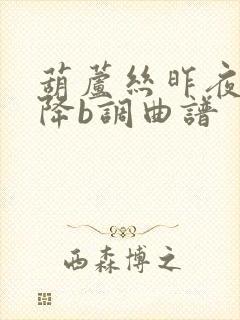 葫蘆絲昨夜
降b調曲譜
西森博之